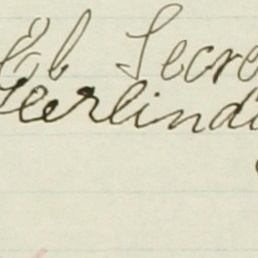 Eb Secre
Geerlind